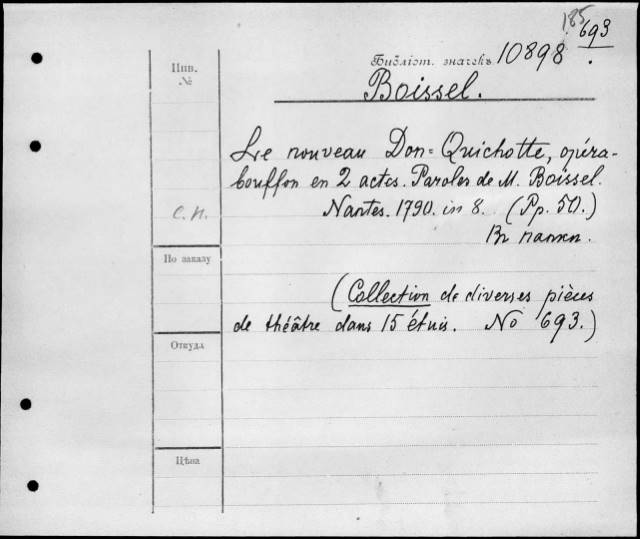 185
693
Библіот. значекъ 10898
Инв.
№
Boissel.
Le nouveau Don=Quichotte, opéra-
bouffon en 2 actes. Paroles de M. Boissel.
Nantes. 1790. in 8. (Pp. 50.)
С. П.
Въ папкѣ.
По заказу
(Collection de diverses pièces
de théâtre dans 15 étuis. No 693.)
Откуда
Цѣна